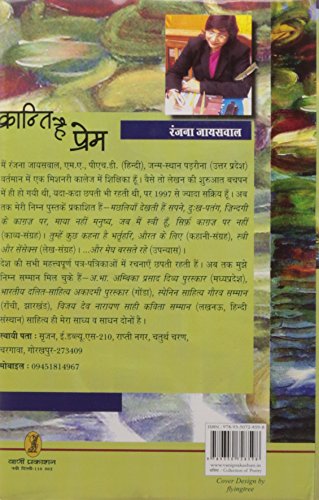 क्रान्ति है
प्रेम
रंजना जायसवाल
में रंजना जायसवाल, एम.ए., पीएच.डी. (हिन्दी), जन्म-स्थान पड़रौना (उत्तर प्रदेश)
वर्तमान में एक मिशनरी कालेज में शिक्षिका हूँ। वैसे तो लेखन की शुरुआत बचपन
में ही हो गयी थी, यदा-कदा छपती भी रहती थी, पर 1997 से ज्यादा सक्रिय हूँ। अब
तक मेरी निम्न पुस्तकें प्रकाशित हैं—मछलियाँ देखती हैं सपने, दुःख-पतंग, ज़िन्दगी
के कागज़ पर, माया नहीं मनुष्य, जब मैं स्त्री हूँ, सिर्फ़ कागज़ पर नहीं
(काव्य-संग्रह)। तुम्हें कुछ कहना है भर्तृहरि, औरत के लिए (कहानी-संग्रह), स्त्री
और सेंसेक्स (लेख-संग्रह)। ...और मेघ बरसते रहे (उपन्यास)।
देश की सभी महत्त्वपूर्ण पत्र-पत्रिकाओं में रचनाएँ छपती रहती हैं। अब तक मुझे
निम्न सम्मान मिल चुके हैं—अ.भा. अम्बिका प्रसाद दिव्य पुरस्कार (मध्यप्रदेश),
भारतीय दलित-साहित्य अकादमी पुरस्कार (गोंडा), स्पेनिन साहित्य गौरव सम्मान
(राँची, झारखंड), विजय देव नारायण साही कविता सम्मान (लखनऊ, हिन्दी
संस्थान) साहित्य ही मेरा साध्य व साधन दोनों है।
स्थायी पता : सृजन, ई.डब्ल्यू.एस-210, राप्ती नगर, चतुर्थ चरण,
चरगावा, गोरखपुर-273409
मोबाइल : 09451814967
वाणी प्रकाशन
नयी दिल्ली-110 002
www.vaniprakashan.in
कविता / Collection of Poetry
Cover Design by
flyingtree